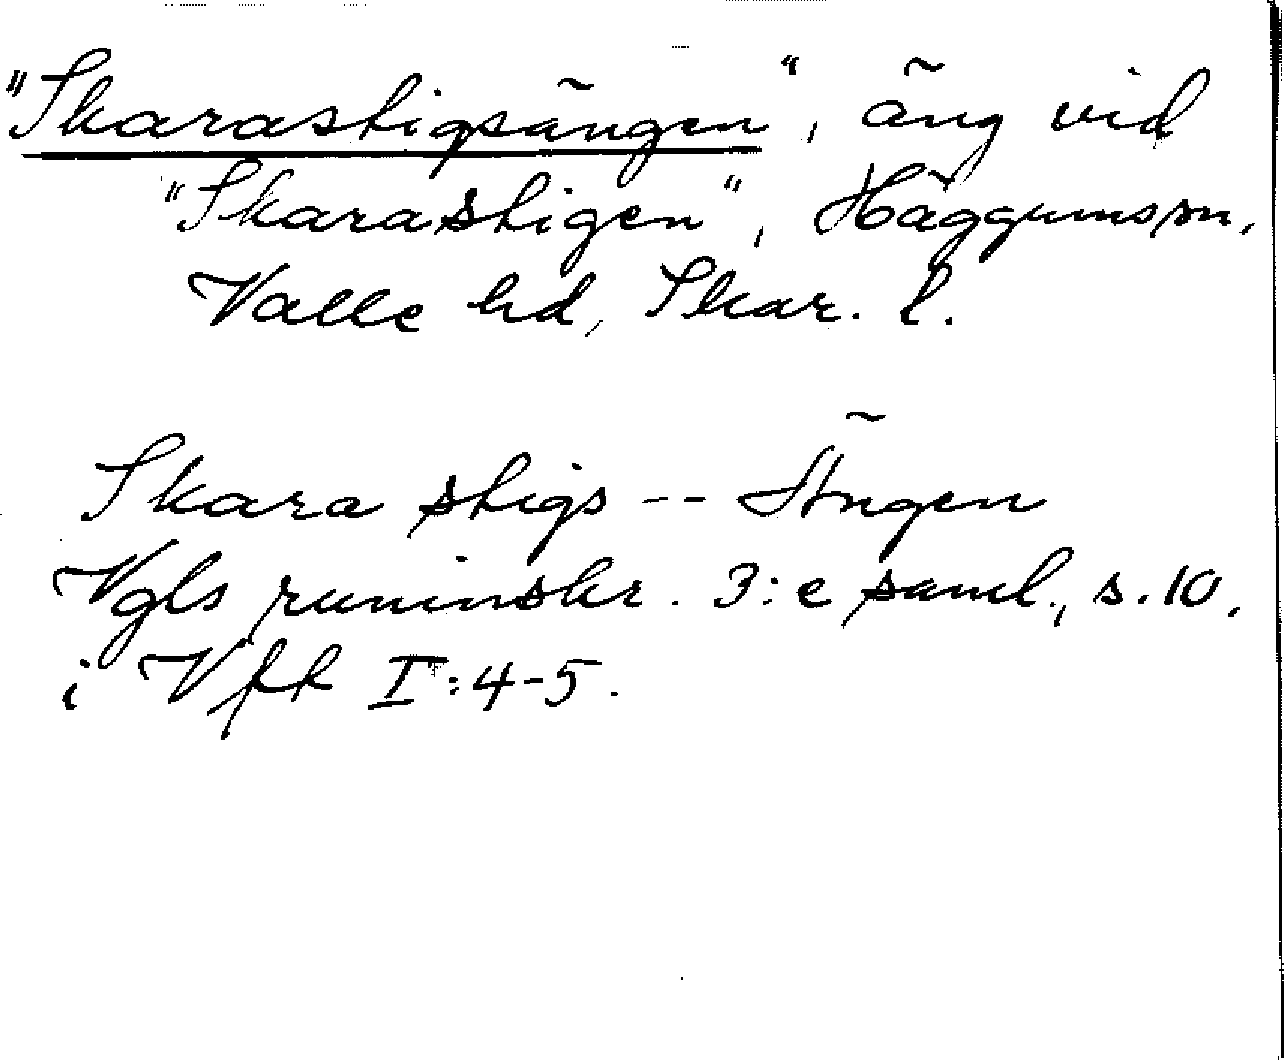 "Skarastigsängen", äng vid
"Skarastigen", Häggums sn,
Valle hd, Skar. l.
Skara stigs -- Ängen
Vgls runinskr. 3:e saml., s. 10,
i Vfk I:4-5.